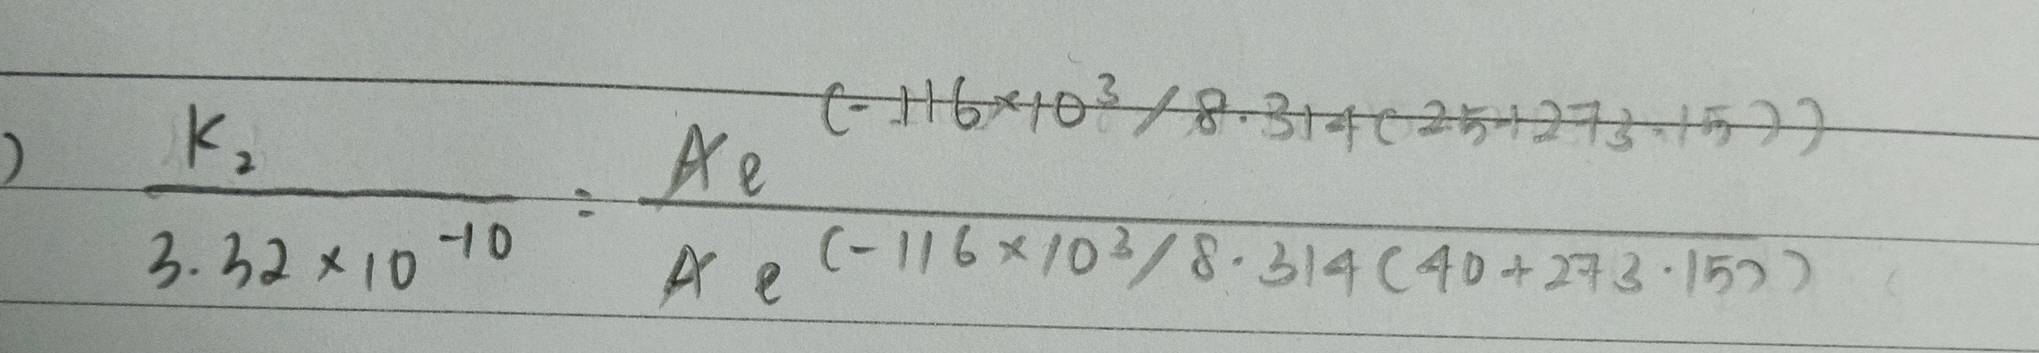 ) K₂ / 3.32 × 10⁻¹⁰ = A e^(-116×10³/8.314(25+273.15)) / A e^(-116×10³/8.314(40+273.15))